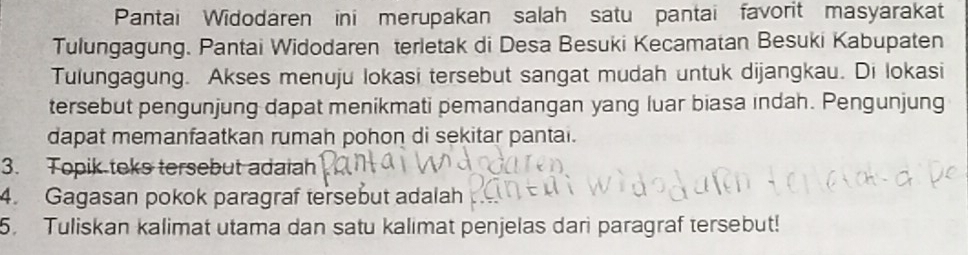 Pantai Widodaren ini merupakan salah satu pantai favorit masyarakat
Tulungagung. Pantai Widodaren terletak di Desa Besuki Kecamatan Besuki Kabupaten
Tulungagung. Akses menuju lokasi tersebut sangat mudah untuk dijangkau. Di lokasi
tersebut pengunjung dapat menikmati pemandangan yang luar biasa indah. Pengunjung
dapat memanfaatkan rumah pohon di sekitar pantai.
3. Topik teks tersebut adalah Pantai Widodaren
4. Gagasan pokok paragraf tersebut adalah Pantai Widodaren terletak di De
5. Tuliskan kalimat utama dan satu kalimat penjelas dari paragraf tersebut!